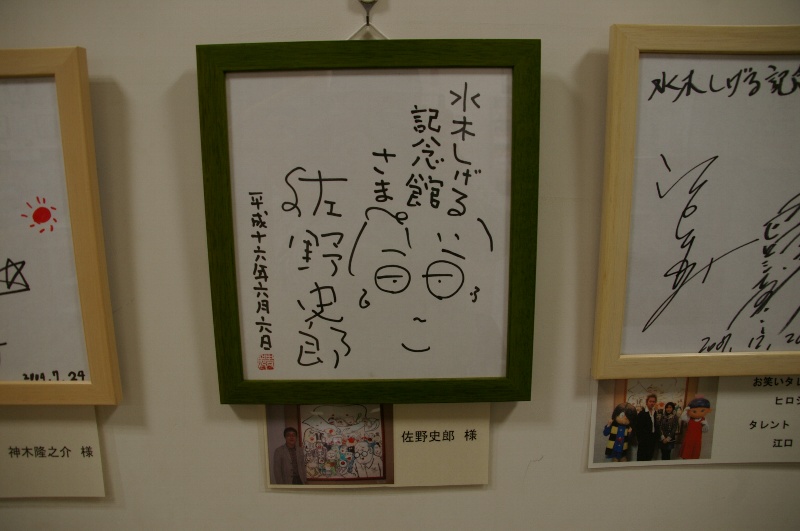 2004.7.24
神木隆之介 様
水木しげる
記念館
さま
佐野史郎
平成十六年六月六日
佐野史郎 様
水木しげる記念
お笑いタレ
ヒロシ
タレント
江口